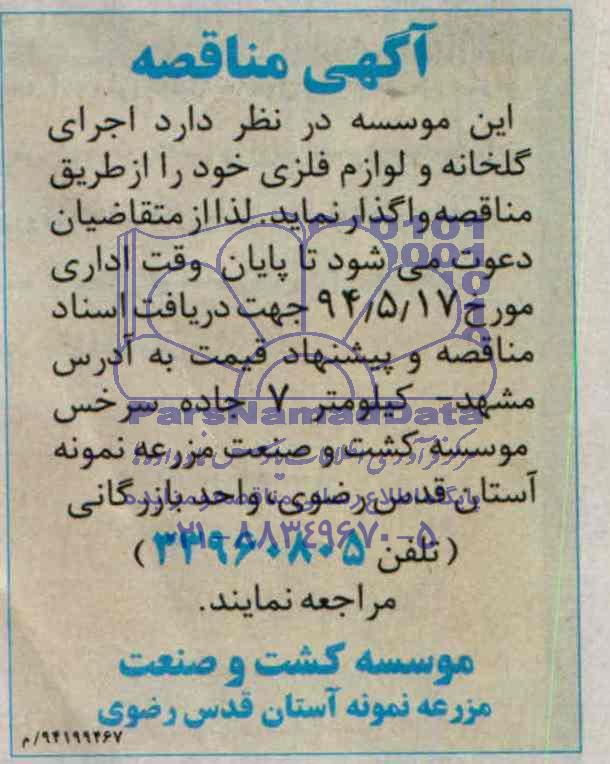 آگهی مناقصه
این موسسه در نظر دارد اجرای
گلخانه و لوازم فلزی خود را ازطریق
مناقصه واگذار نماید. لذا از متقاضیان
دعوت می شود تا پایان وقت اداری
مورخ ۹۴/۵/۱۷ جهت دریافت اسناد
مناقصه و پیشنهاد قیمت به آدرس
مشهد- کیلومتر ۷ جاده سرخس
ParsNamadData
موسسه کشت و صنعت مزرعه نمونه
آستان قدس رضوی، واحد بازرگانی
۰۲۱-۸۸۳۴۹۶۷۰-۵
(تلفن ۳۳۹۶۰۸۰۵)
مراجعه نمایند.
موسسه کشت و صنعت
مزرعه نمونه آستان قدس رضوی
۹۴۱۹۹۴۶۷/م